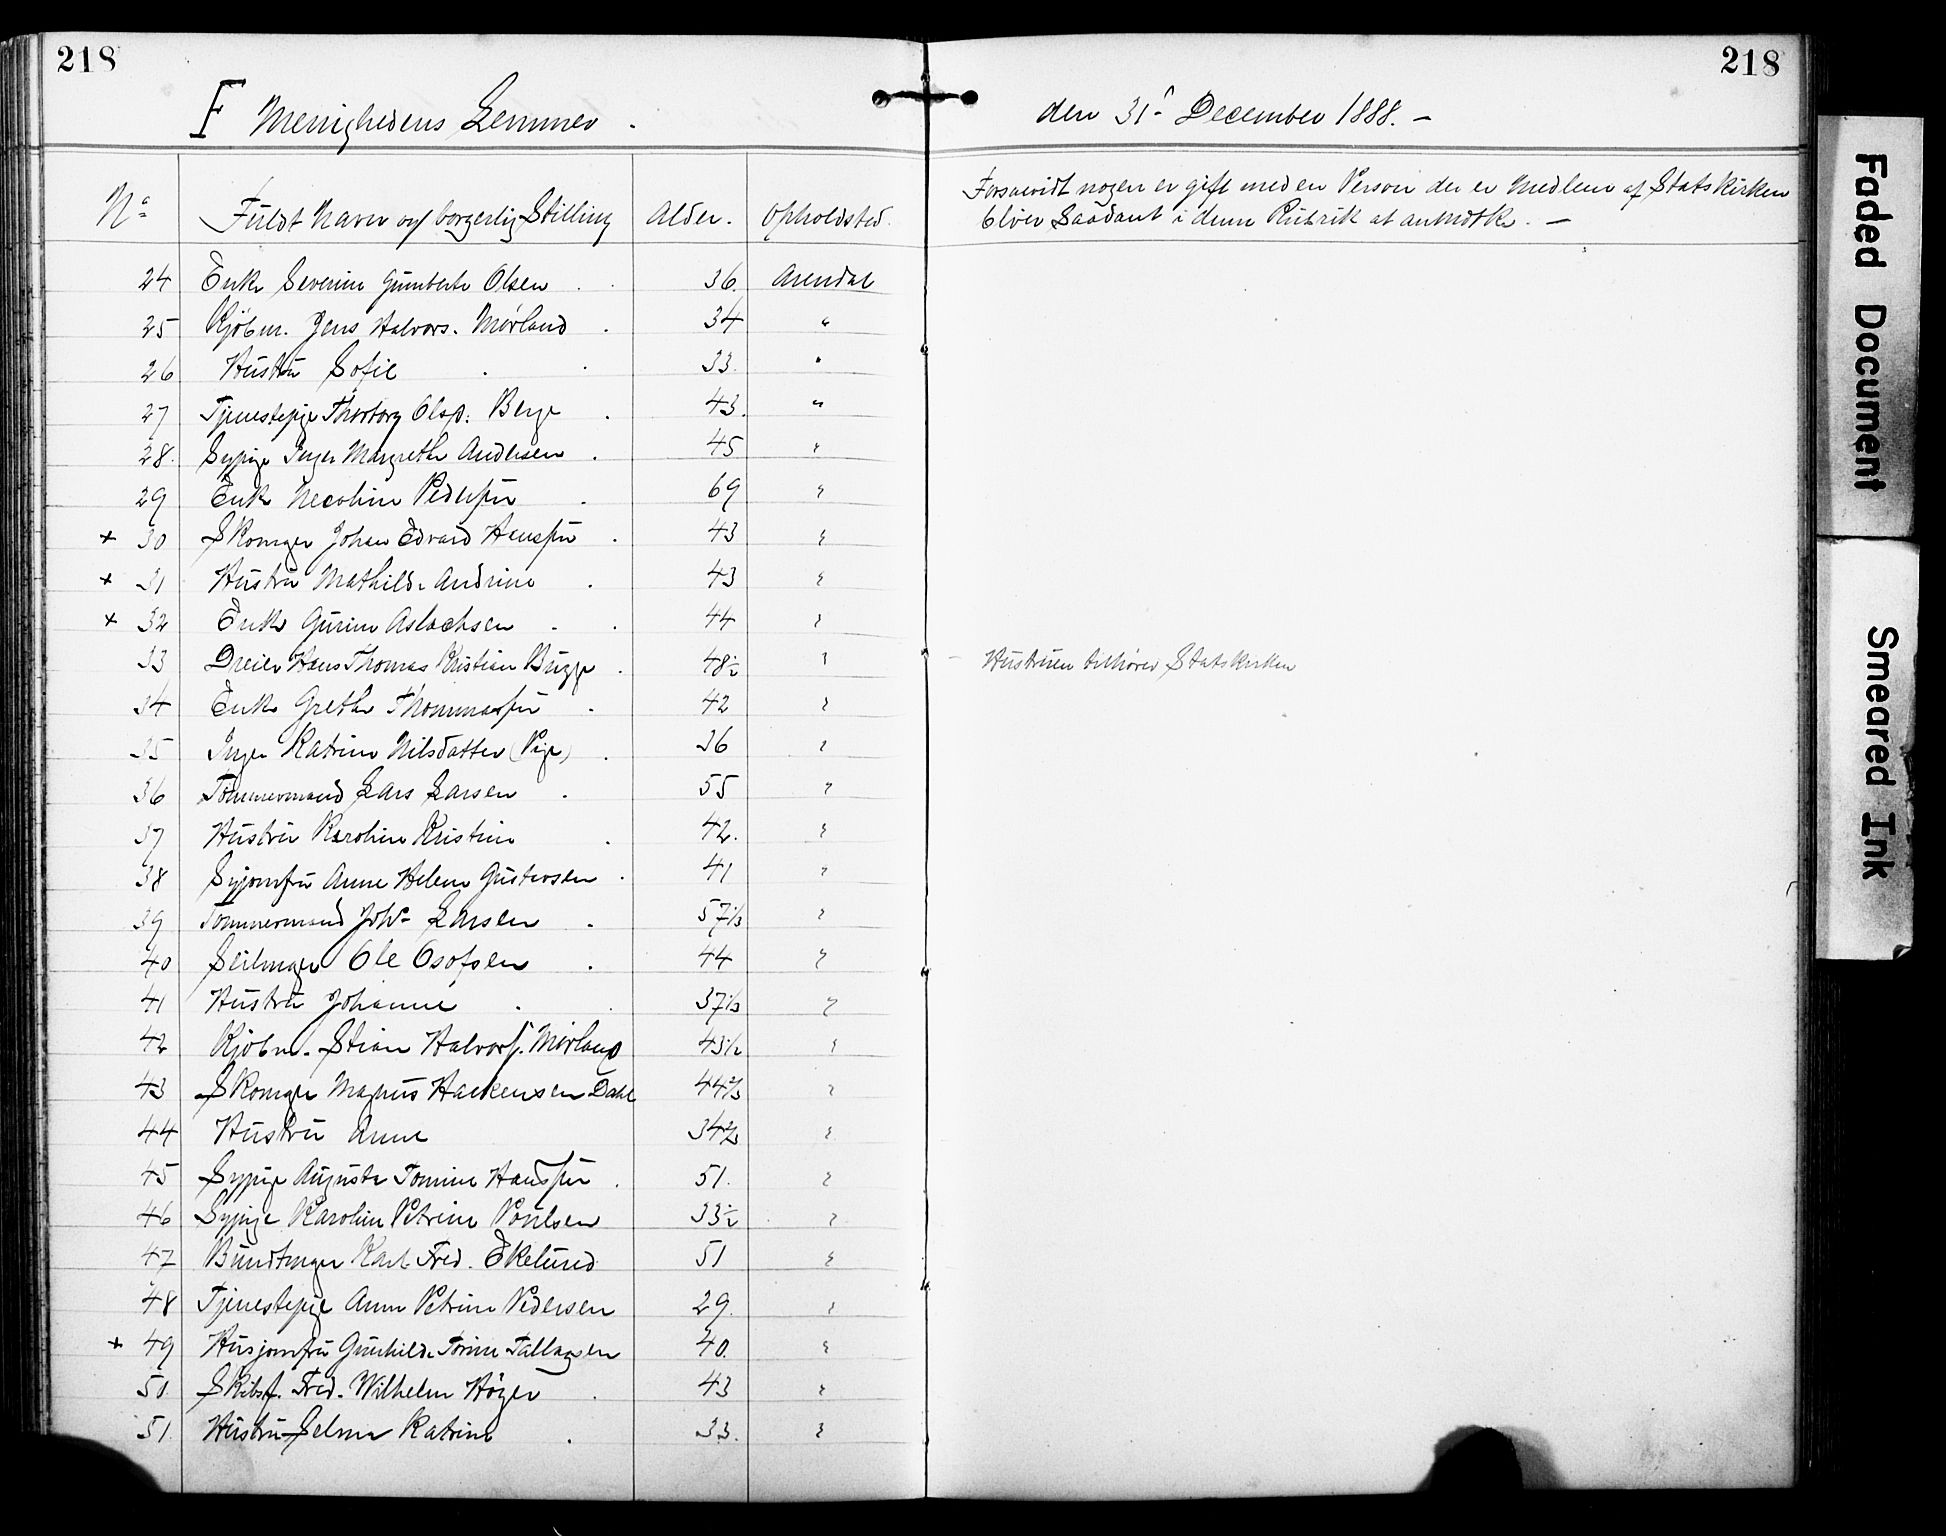 218
218
F Menighedens Lemmer.
den 31' December 1888. –
No
Fuldt Navn og borgerlig Stilling
Alder.
Opholdsted.
Forsaavidt nogen er gift med en Person der er Medlem af Statskirken
bliver Saadant i denne Rubrik at anmærke. –
24 Enke Severine Gumberte Olsen . 36. Arendal
25 Kjøbm. Jens Halvors. Mørland . 34 "
26 Hustru Sofie . 33. "
27 Tjenestepige Thorborg Olsd: Berge . 43. "
28. Sypige Inger Margrethe Andersen . 45 "
29 Enke Necoline Pedersen . 69 "
+ 30 Skomager Johan Edvard Hanssen . 43 "
+ 31 Hustru Mathilde Andrine . 43 "
+ 32 Enke Gurine Aslachsen . 44 "
33 Dreier Hans Thomas Kristian Bugge . 48½ " – Hustruen tilhører Statskirken
34 Enke Grethe Thommassen . 42 "
35 Inger Katrine Nilsdatter (Pige) . 36 "
36 Tømmermand Lars Larsen . 55 "
37 Hustru Karoline Kristine . 42. "
38 Syjomfru Anne Helene Gustavsen . 41 "
39 Tømmermand Johs Larsen . 57⅓ "
40 Seilmager Ole Osofsen . 44 "
41 Hustru Johanne . 37⅓ "
42 Kjøbm. Stian Halvors. Mørland 43½ "
43 Skomager Magnus Haakensen Dahl 44⅔ "
44 Hustru Anne 34⅔ "
45 Sypige Auguste Tomine Hanssen . 51. "
46 Sypige Karoline Petrine Poulsen 33½ "
47 Bundtmager Karl Fred. Ekelund 51 "
48 Tjenestepige Anne Petrine Pedersen 29. "
+ 49 Husjomfru Gunhilde Torine Tallaksen 40. "
50. Skibsf. Fred. Wilhelm Höyer . 43 "
51. Hustru Selma Katrine . 33. "
Faded Document
Smeared Ink